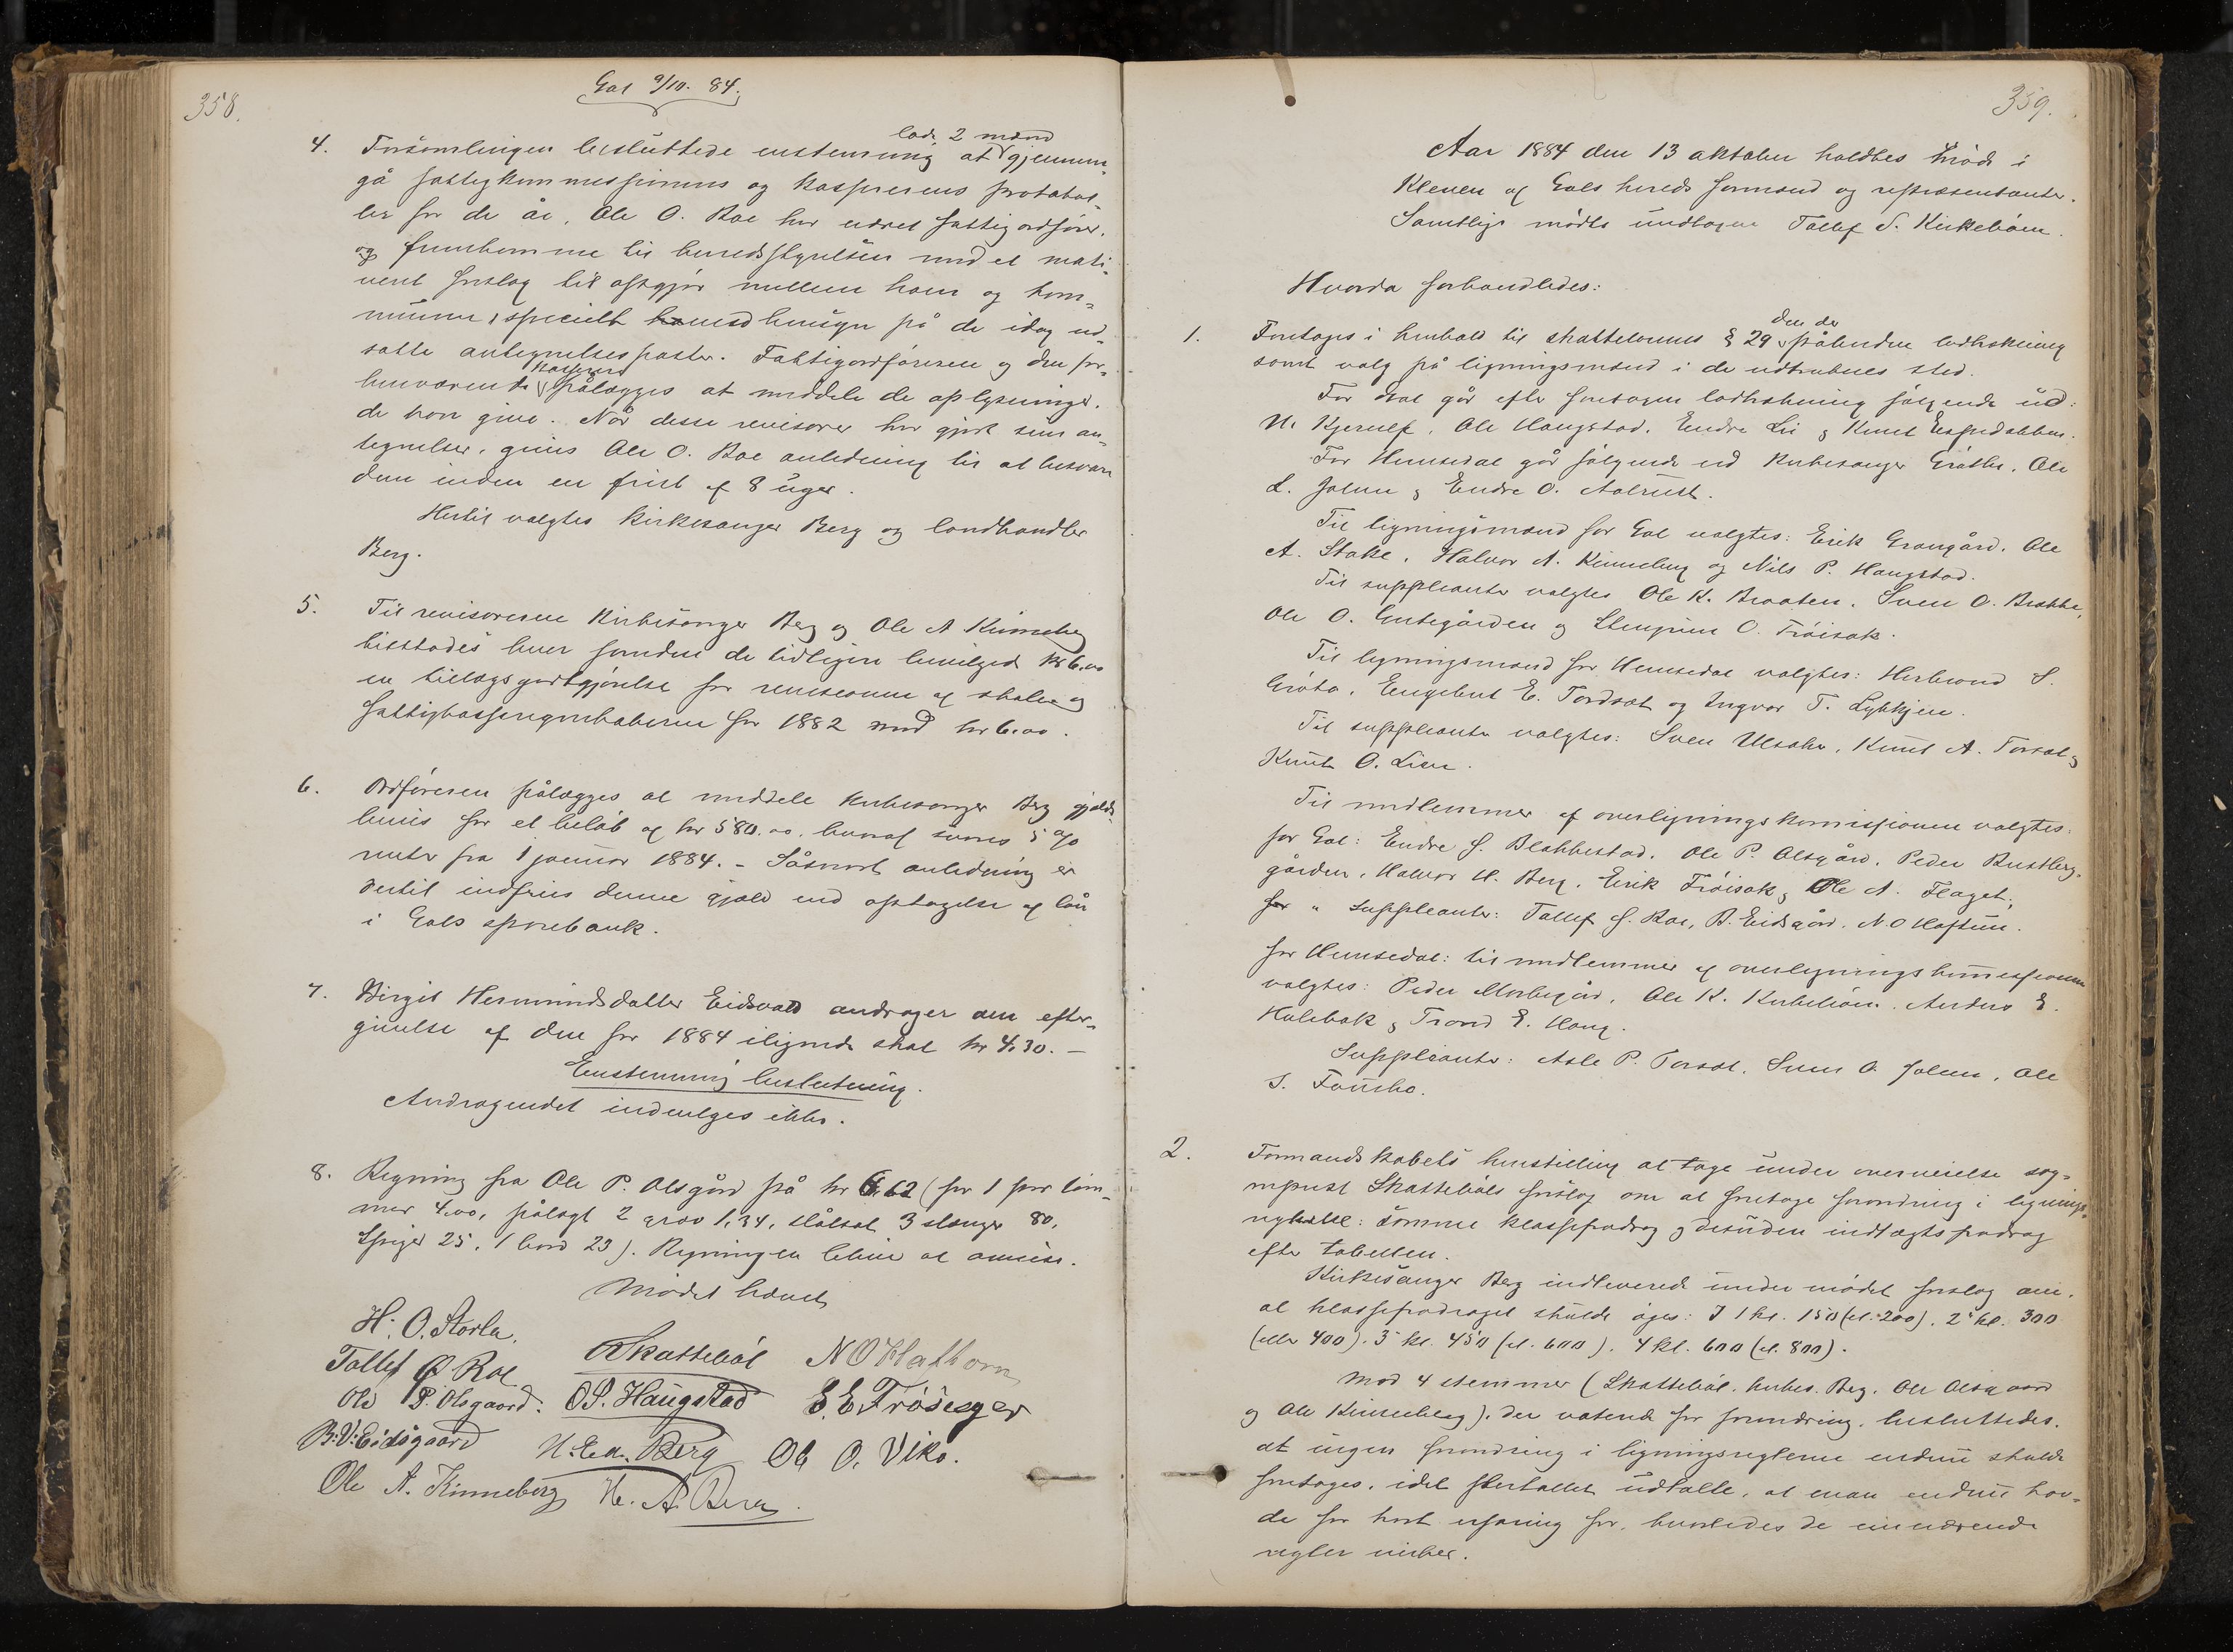 358.
Gol 9/10. 84.
4. Forsamlingen besluttede enstemmig at lade 2 mænd gjennem-
gå fattigkommissionens og kasserens protokol-
ler for de år, Ole O. Roe har været fattigordfører,
og fremkomme til heredsstyrelsen med et moti-
veret forslag til opgjør mellem ham og kom-
munen, specielt med hensyn på de idag ud-
satte antegnelsesposter. Fattigordføreren og den for-
henværende kasserer pålægges at meddele de oplysninger,
de kan give. Når disse revisorer har gjort sine an-
tegnelser, gives Ole O. Roe anledning til at besvare
dem inden en frist af 8 uger.
Hertil valgtes kirkesanger Berg og landhandler
Berg.
5. Til revisorerne kirkesanger Berg og Ole A Kinneberg
tilstodes hver foruden de tidligere bevilgede kr 6.00
en tillægsgodtgjørelse for revisionen af skole og
fattigkasseregnskaberne for 1882 med kr 6.00.
6. Ordføreren pålægges at meddele kirkesanger Berg gjælds-
bevis for et beløb af kr 580.00, hvoraf svares 5 %
renter fra 1 januar 1884. – Såsnart anledning er
dertil indfries denne gjæld ved optagelse af lån
i Gols sparebank.
7. Birgit Hermundsdatter Eidsvold andrager om efter-
givelse af den for 1884 ilignede skat kr 4,30. –
Enstemmig beslutning.
Andragendet indvilges ikke.
8. Regning fra Ole P. Olsgård på kr 6,62 (for 1 par læm-
mer 4.00, pålagt 2 1,34, 3 stænger 80,
spiger 25, 1 bord 23). Regningen blev at anvise.
Mødet hævet
H. O. Storla.
Skattebøl N O Hafthorn
Tollef O Roe
Ole P. Olsgaard. O P. Haugstad E. E. Trøseger
B. V. Eidsgaard N. En. Berg Ole O. Viko.
Ole A. Kinneberg H. A. Berg
359.
Aar 1884 den 13 oktober holdtes møde i
Kleven af Gols hereds formænd og repræsentanter.
Samtlige mødte undtagen Tollef S. Kirkebøen.
Hvorda forhandledes:
1. Foretoges i henhold til skattelovens § 29 den der påbudne lodtrækning
samt valg på ligningsmænd i de udtruknes sted.
For Gol går efter foretagen lodtrækning følgende ud:
N. Kjerulf, Ole Haugstad, Endre Lii & Knut
For Hemsedal går følgende ud kirkesanger Grøthe, Ole
L. Jolen & Endre O. Aalrust.
Til ligningsmænd for Gol valgtes: Erik Grangård, Ole
A. Stake, Halvor A. Kinneberg og Nils P. Haugstad.
Til suppleanter valgtes Ole K. Braaten, Sven O. Brekke,
Ole O. Gutegården og Stengrim O. Trøisak.
Til ligningsmænd for Hemsedal valgtes: Herbrand S.
Grøto, Engebret E. Tordsæt og Ingvar T. Lykkjen.
Til suppleanter valgtes: Sven Ulsaker, Knut A. Torsæt &
Knut O. Lien.
Til medlemmer af overligningskommissionen valgtes:
for Gol: Endre S. Blakkestad, Ole P. Olsgård, Peder Rustberg-
gården, Halvor H. Berg, Erik Trøisak & Ole A. Flaget;
for " suppleanter: Tollef S. Roe, B. Eidsgård, N. O Haftun.
for Hemsedal: til medlemmer af overligningskommissionen
valgtes: Peder Markegård, Ole K. Kirkebøen, Anders E.
Holebak & Trond E. Haug.
Suppleanter: Asle P. Torsæt, Sven O. Jolen, Ole
S. Fauske.
2. Formandskabets henstilling at tage under overveielse sog-
neprest Skattebøls forslag om at foretage forandring i lignings-
reglerne: samme klassefradrag & desuden indtægtsfradrag
efter tabellen.
Kirkesanger Berg indleverede under mødet forslag om,
at klassefradraget skulde øges: I 1 kl. 150 (el. 200), 2 kl. 300
(eller 400), 3 kl. 450 (el. 600), 4 kl. 600 (el. 800).
Mod 4 stemmer (Skattebøl, kirkes. Berg, Ole Olsgaard
og Ole Kinneberg), der voterede for forandring, besluttedes,
at ingen forandring i ligningsreglerne endnu skulde
foretages, idet flertallet udtalte, at man endnu hav-
de for kort erfaring for, hvorledes de nuværende
regler virker.